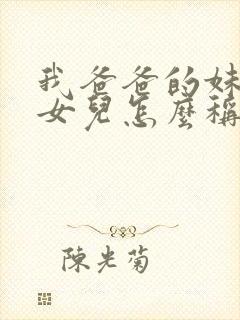 我爸爸的妹
女兒怎麼稱
陳光菊